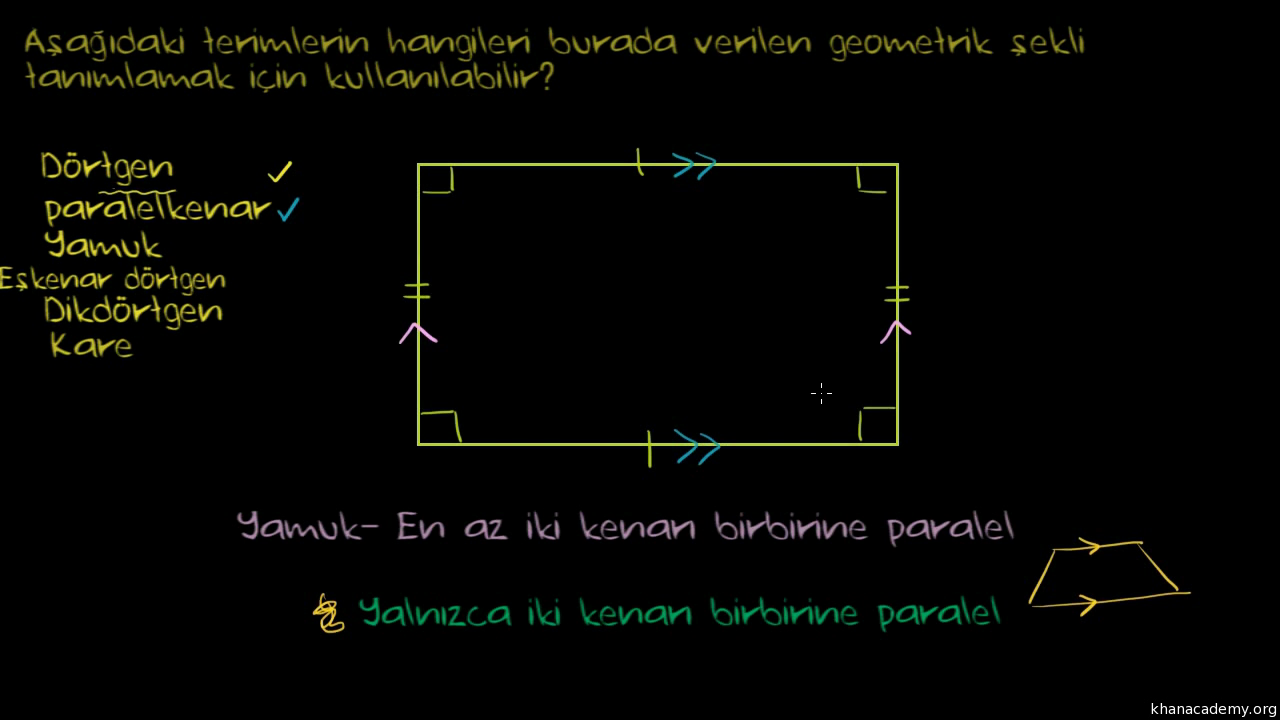 Aşağıdaki terimlerin hangileri burada verilen geometrik şekli
tanımlamak için kullanılabilir?
Dörtgen
paralelkenar
Yamuk
Eşkenar dörtgen
Dikdörtgen
Kare
Yamuk- En az iki kenarı birbirine paralel
Yalnızca iki kenarı birbirine paralel
khanacademy.org